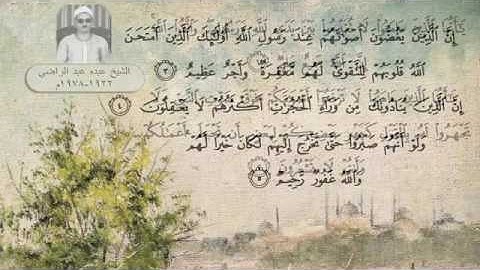 الشيخ عبده عبد الراضي
إِنَّ الَّذِينَ يَغُضُّونَ أَصْوَاتَهُمْ عِندَ رَسُولِ اللَّهِ أُولَٰئِكَ الَّذِينَ امْتَحَنَ
اللَّهُ قُلُوبَهُمْ لِلتَّقْوَىٰ لَهُم مَّغْفِرَةٌ وَأَجْرٌ عَظِيمٌ ٣
إِنَّ الَّذِينَ يُنَادُونَكَ مِن وَرَاءِ الْحُجُرَاتِ أَكْثَرُهُمْ لَا يَعْقِلُونَ ٤
وَلَوْ أَنَّهُمْ صَبَرُوا حَتَّىٰ تَخْرُجَ إِلَيْهِمْ لَكَانَ خَيْرًا لَّهُمْ
وَاللَّهُ غَفُورٌ رَّحِيمٌ ٥